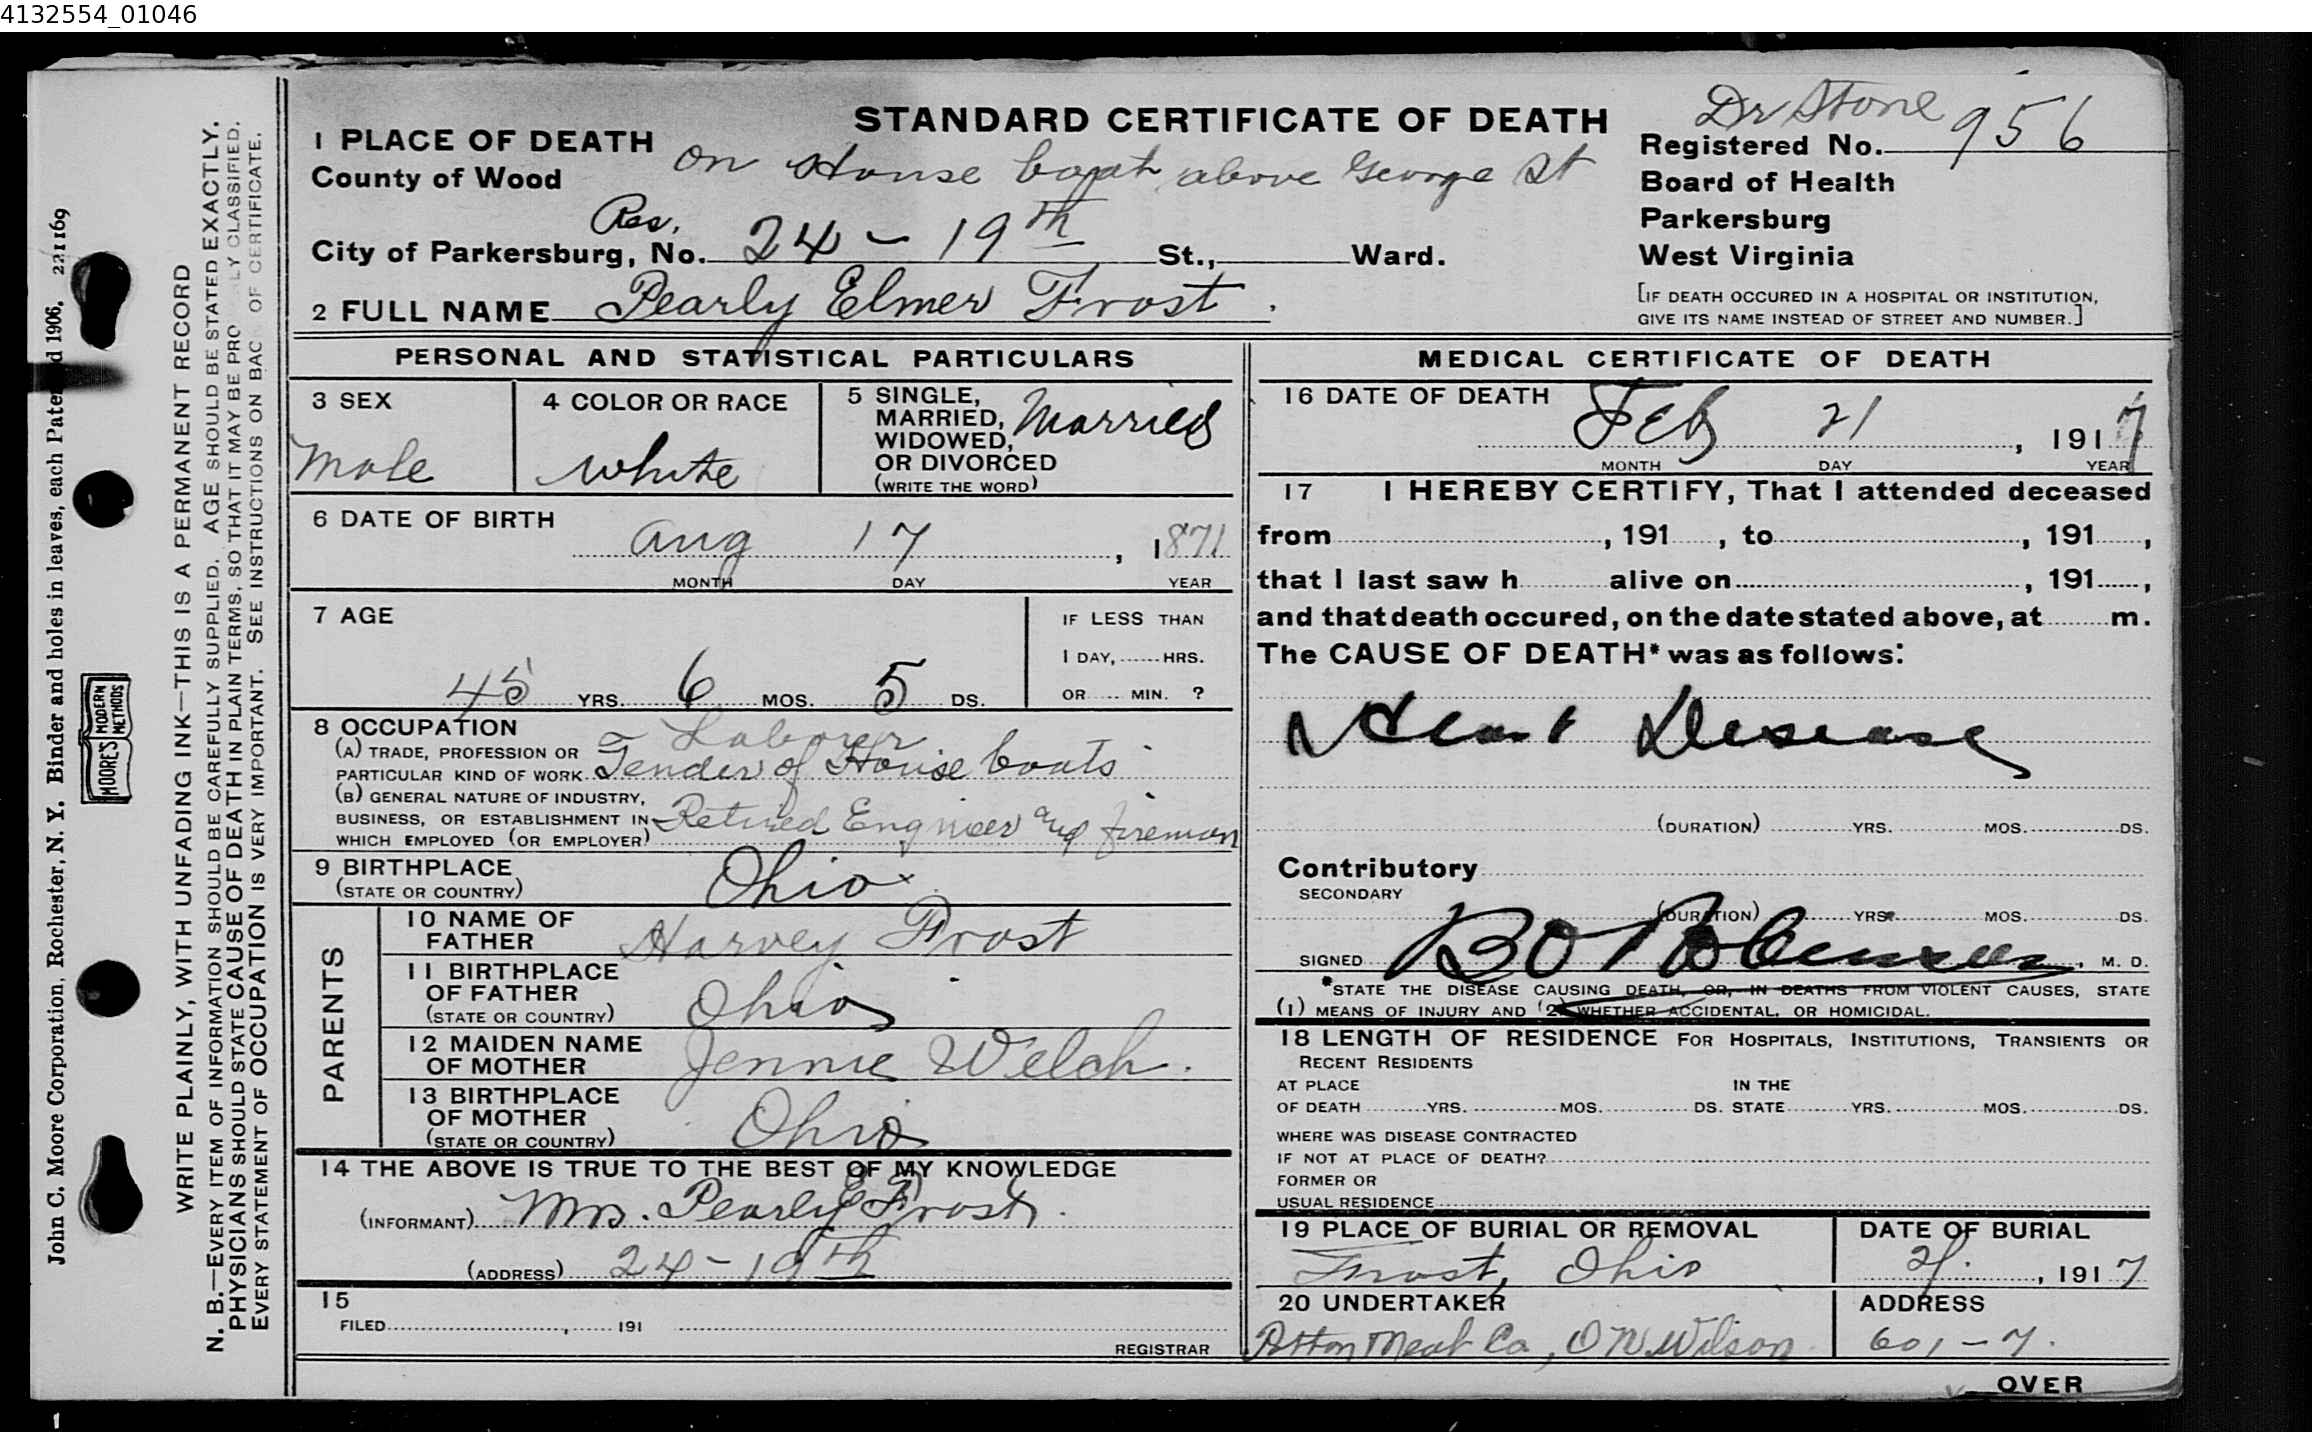 4132554_01046
John C. Moore Corporation, Rochester, N. Y. Binder and holes in leaves, each Patented 1906, 221169
MOORE'S MODERN METHODS
WRITE PLAINLY, WITH UNFADING INK—THIS IS A PERMANENT RECORD
N. B.—EVERY ITEM OF INFORMATION SHOULD BE CAREFULLY SUPPLIED. AGE SHOULD BE STATED EXACTLY.
PHYSICIANS SHOULD STATE CAUSE OF DEATH IN PLAIN TERMS, SO THAT IT MAY BE PROPERLY CLASSIFIED.
EVERY STATEMENT OF OCCUPATION IS VERY IMPORTANT. SEE INSTRUCTIONS ON BACK OF CERTIFICATE.
STANDARD CERTIFICATE OF DEATH
Dr Stone
Registered No. 956
Board of Health
Parkersburg
West Virginia
[IF DEATH OCCURED IN A HOSPITAL OR INSTITUTION,
GIVE ITS NAME INSTEAD OF STREET AND NUMBER.]
1 PLACE OF DEATH
County of Wood on House boat above George St
Res.
City of Parkersburg, No. 24 - 19th St., Ward.
2 FULL NAME Pearly Elmer Frost.
PERSONAL AND STATISTICAL PARTICULARS
3 SEX
Male
4 COLOR OR RACE
White
5 SINGLE,
MARRIED,
WIDOWED,
OR DIVORCED
(WRITE THE WORD)
Married
6 DATE OF BIRTH
Aug 17, 1871
MONTH DAY YEAR
7 AGE
45 YRS. 6 MOS. 5 DS.
IF LESS THAN
1 DAY, HRS.
OR MIN. ?
8 OCCUPATION
(A) TRADE, PROFESSION OR
PARTICULAR KIND OF WORK
Laborer
Tender of House boats
(B) GENERAL NATURE OF INDUSTRY,
BUSINESS, OR ESTABLISHMENT IN
WHICH EMPLOYED (OR EMPLOYER)
Retired Engineer and fireman
9 BIRTHPLACE
(STATE OR COUNTRY)
Ohio
PARENTS
10 NAME OF
FATHER
Harvey Frost
11 BIRTHPLACE
OF FATHER
(STATE OR COUNTRY)
Ohio
12 MAIDEN NAME
OF MOTHER
Jennie Welch.
13 BIRTHPLACE
OF MOTHER
(STATE OR COUNTRY)
Ohio
14 THE ABOVE IS TRUE TO THE BEST OF MY KNOWLEDGE
(INFORMANT) Mrs. Pearly E Frost.
(ADDRESS) 24 - 19th
15
FILED , 191
REGISTRAR
MEDICAL CERTIFICATE OF DEATH
16 DATE OF DEATH
Feb 21, 1917
MONTH DAY YEAR
17 I HEREBY CERTIFY, That I attended deceased
from , 191 , to , 191 ,
that I last saw h alive on , 191 ,
and that death occured, on the date stated above, at m.
The CAUSE OF DEATH* was as follows:
Heart Desease
(DURATION) YRS. MOS. DS.
Contributory
SECONDARY
(DURATION) YRS. MOS. DS.
SIGNED B O Robinson, M. D.
*STATE THE DISEASE CAUSING DEATH, OR, IN DEATHS FROM VIOLENT CAUSES, STATE
(1) MEANS OF INJURY AND (2) WHETHER ACCIDENTAL, OR HOMICIDAL.
18 LENGTH OF RESIDENCE FOR HOSPITALS, INSTITUTIONS, TRANSIENTS OR
RECENT RESIDENTS
AT PLACE IN THE
OF DEATH YRS. MOS. DS. STATE YRS. MOS. DS.
WHERE WAS DISEASE CONTRACTED
IF NOT AT PLACE OF DEATH?
FORMER OR
USUAL RESIDENCE
19 PLACE OF BURIAL OR REMOVAL
Frost, Ohio
DATE OF BURIAL
, 1917
20 UNDERTAKER
Co, O N Wilson
ADDRESS
601 - 7.
OVER